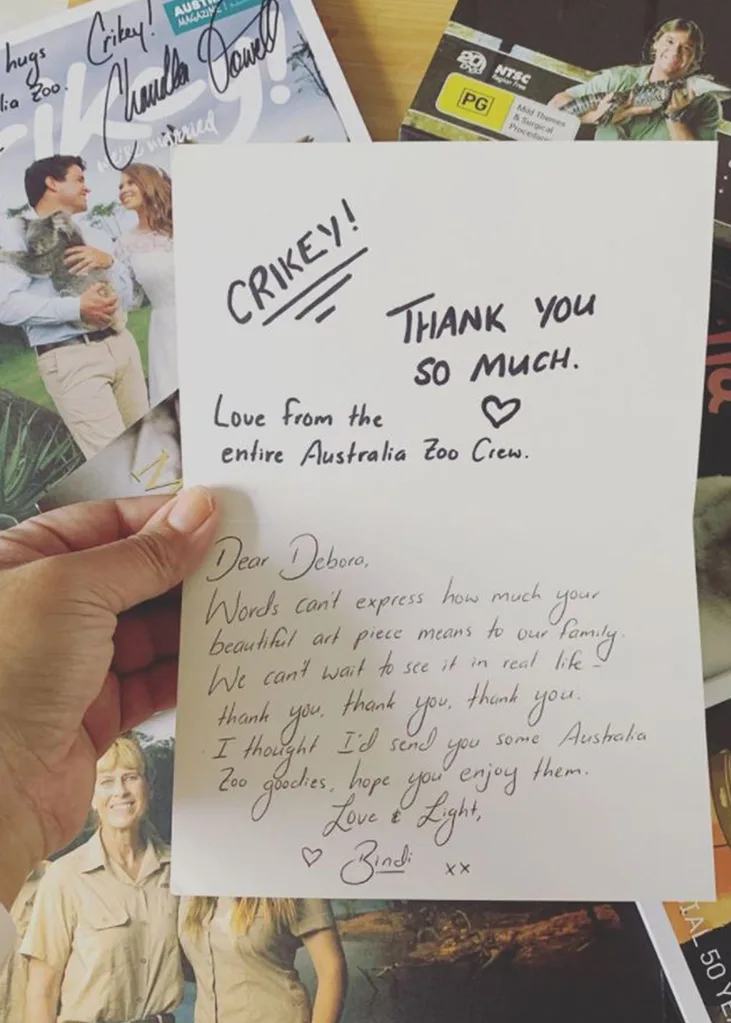 hugs Crikey!
lia Zoo.
Chandler Powell
AUST
MAGAZINE
rikey!
we're married
20
DVD
NTSC
Region Free
PG
Mild Themes
& Surgical
Procedures
CRIKEY!
THANK YOU
SO MUCH.
Love from the
entire Australia Zoo Crew.
Dear Debora,
Words can't express how much your
beautiful art piece means to our family.
We can't wait to see it in real life -
thank you, thank you, thank you.
I thought I'd send you some Australia
Zoo goodies, hope you enjoy them.
Love & Light,
Bindi xx
IAL 50 YE